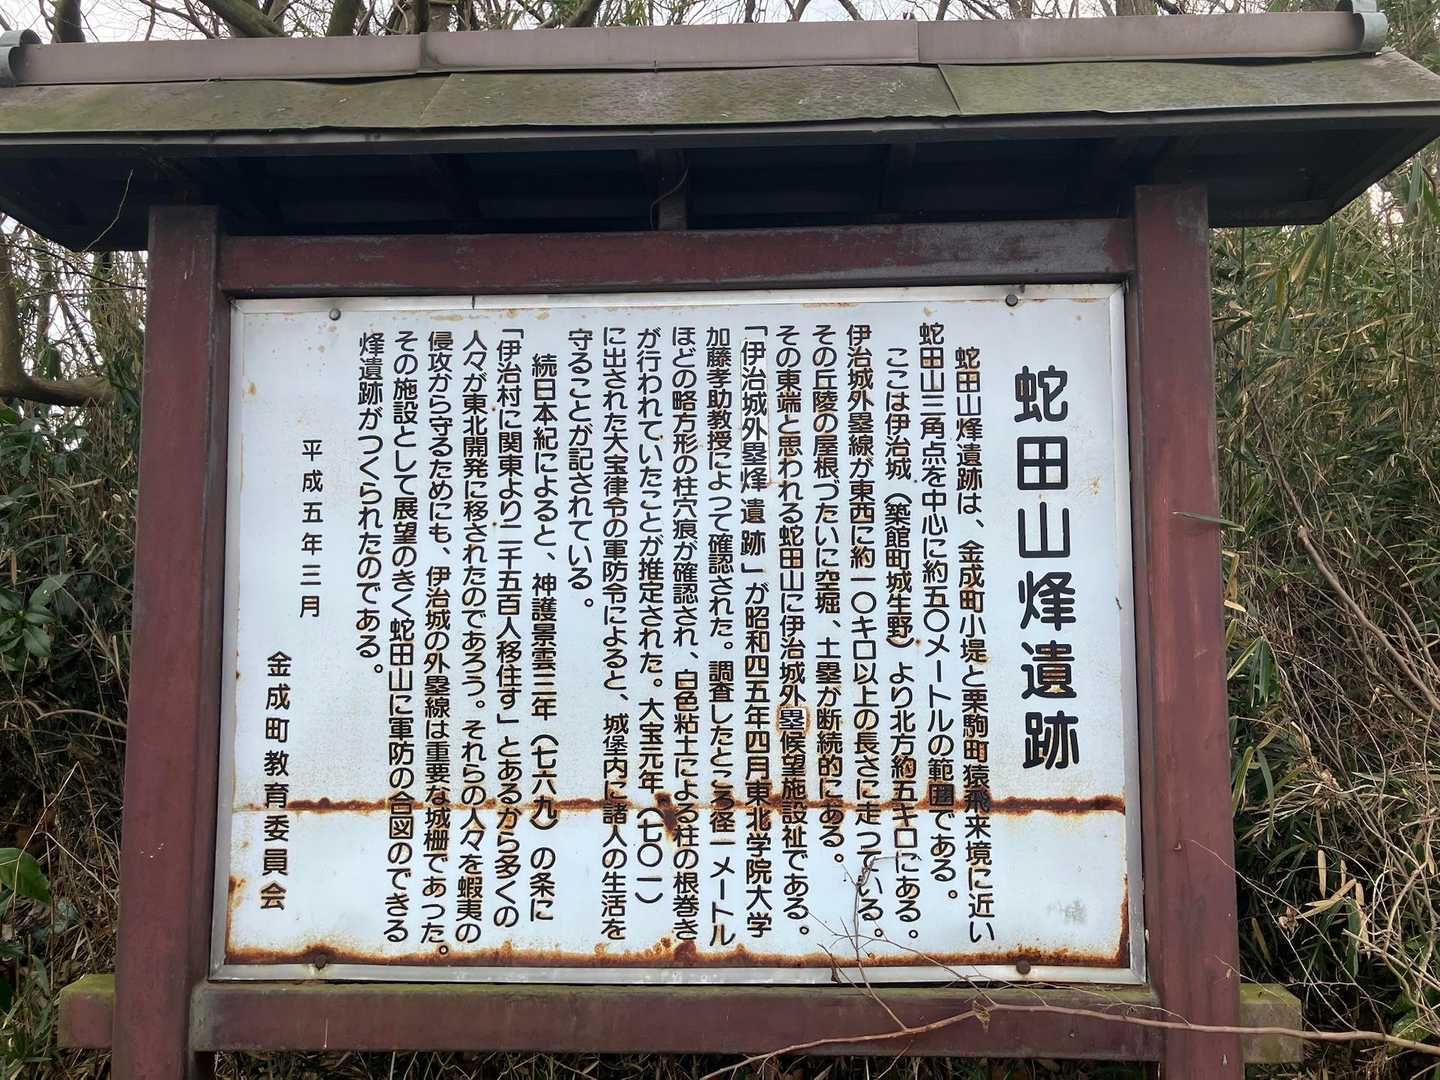 蛇田山烽遺跡
蛇田山烽遺跡は、金成町小堤と栗駒町猿飛来境に近い
蛇田山三角点を中心に約五〇メートルの範囲である。
ここは伊治城（築館町城生野）より北方約五キロにある。
伊治城外塁線が東西に約一〇キロ以上の長さに走っている。
その丘陵の屋根づたいに空堀、土塁が断続的にある。
その東端と思われる蛇田山に伊治城外塁候望施設祉である。
「伊治城外塁烽遺跡」が昭和四五年四月東北学院大学
加藤孝助教授によって確認された。調査したところ径一メートル
ほどの略方形の柱穴痕が確認され、白色粘土による柱の根巻き
が行われていたことが推定された。大宝元年（七〇一）
に出された大宝律令の軍防令によると、城堡内に諸人の生活を
守ることが記されている。
続日本紀によると、神護景雲三年（七六九）の条に
「伊治村に関東より二千五百人移住す」とあるから多くの
人々が東北開発に移されたのであろう。それらの人々を蝦夷の
侵攻から守るためにも、伊治城の外塁線は重要な城柵であった。
その施設として展望のきく蛇田山に軍防の合図のできる
烽遺跡がつくられたのである。
平成五年三月
金成町教育委員会